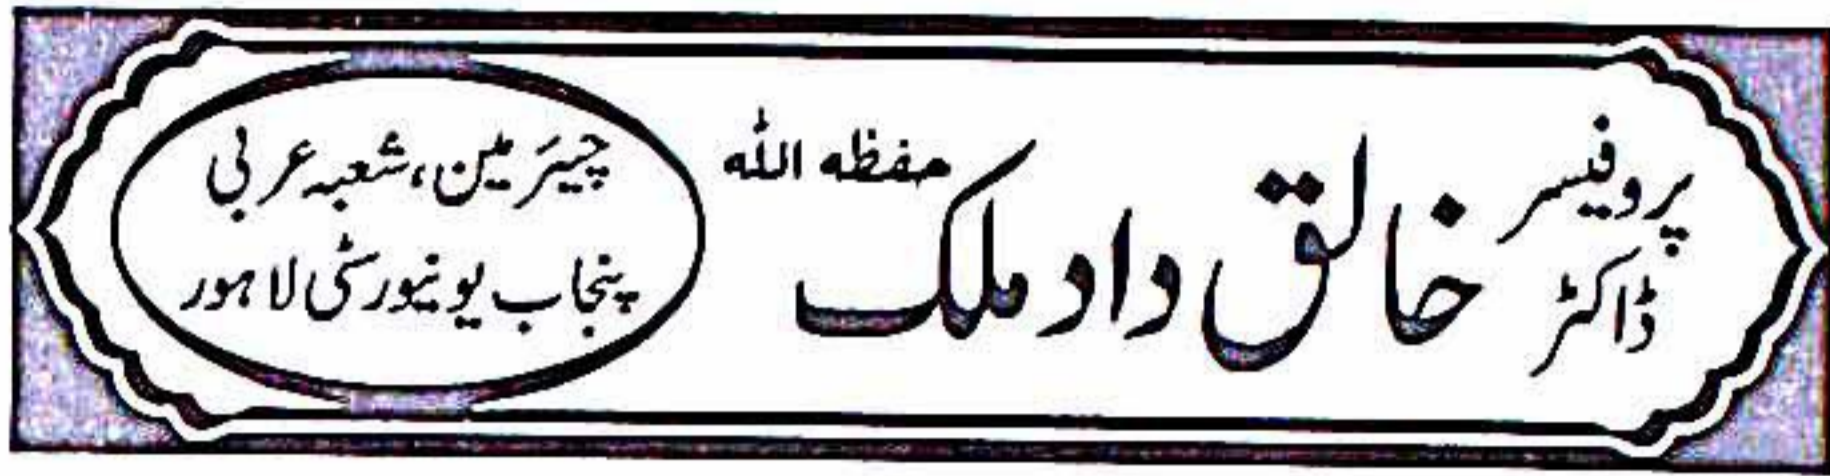 پروفیسر ڈاکٹر خالق داد ملک حفظه الله
چیئرمین، شعبہ عربی
پنجاب یونیورسٹی لاہور